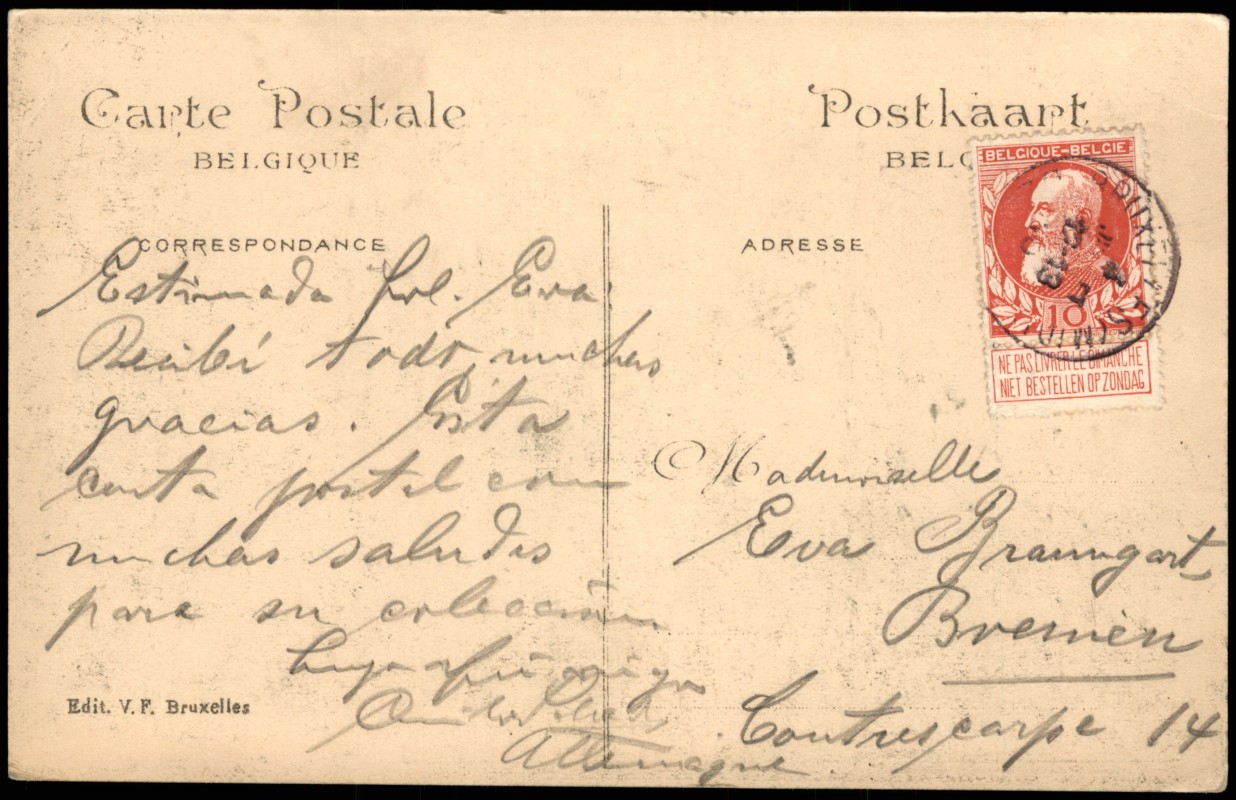 Carte Postale
BELGIQUE
Postkaart
BELG
BELGIQUE-BELGIE
10
NE PAS LIVRER LE DIMANCHE
NIET BESTELLEN OP ZONDAG
CORRESPONDANCE
ADRESSE
Estimada Frl. Eva
Recibí todo, muchas
gracias. Esta
carta postal con
muchos saludos
para su colección
Mademoiselle
Eva Braungart
Bremen
Contrescarpe 14
Allemagne
Edit. V. F. Bruxelles